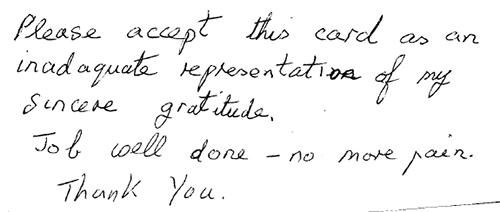 Please accept this card as an
inadaquate representation of my
sincere gratitude.
Job well done - no more pain.
Thank You.